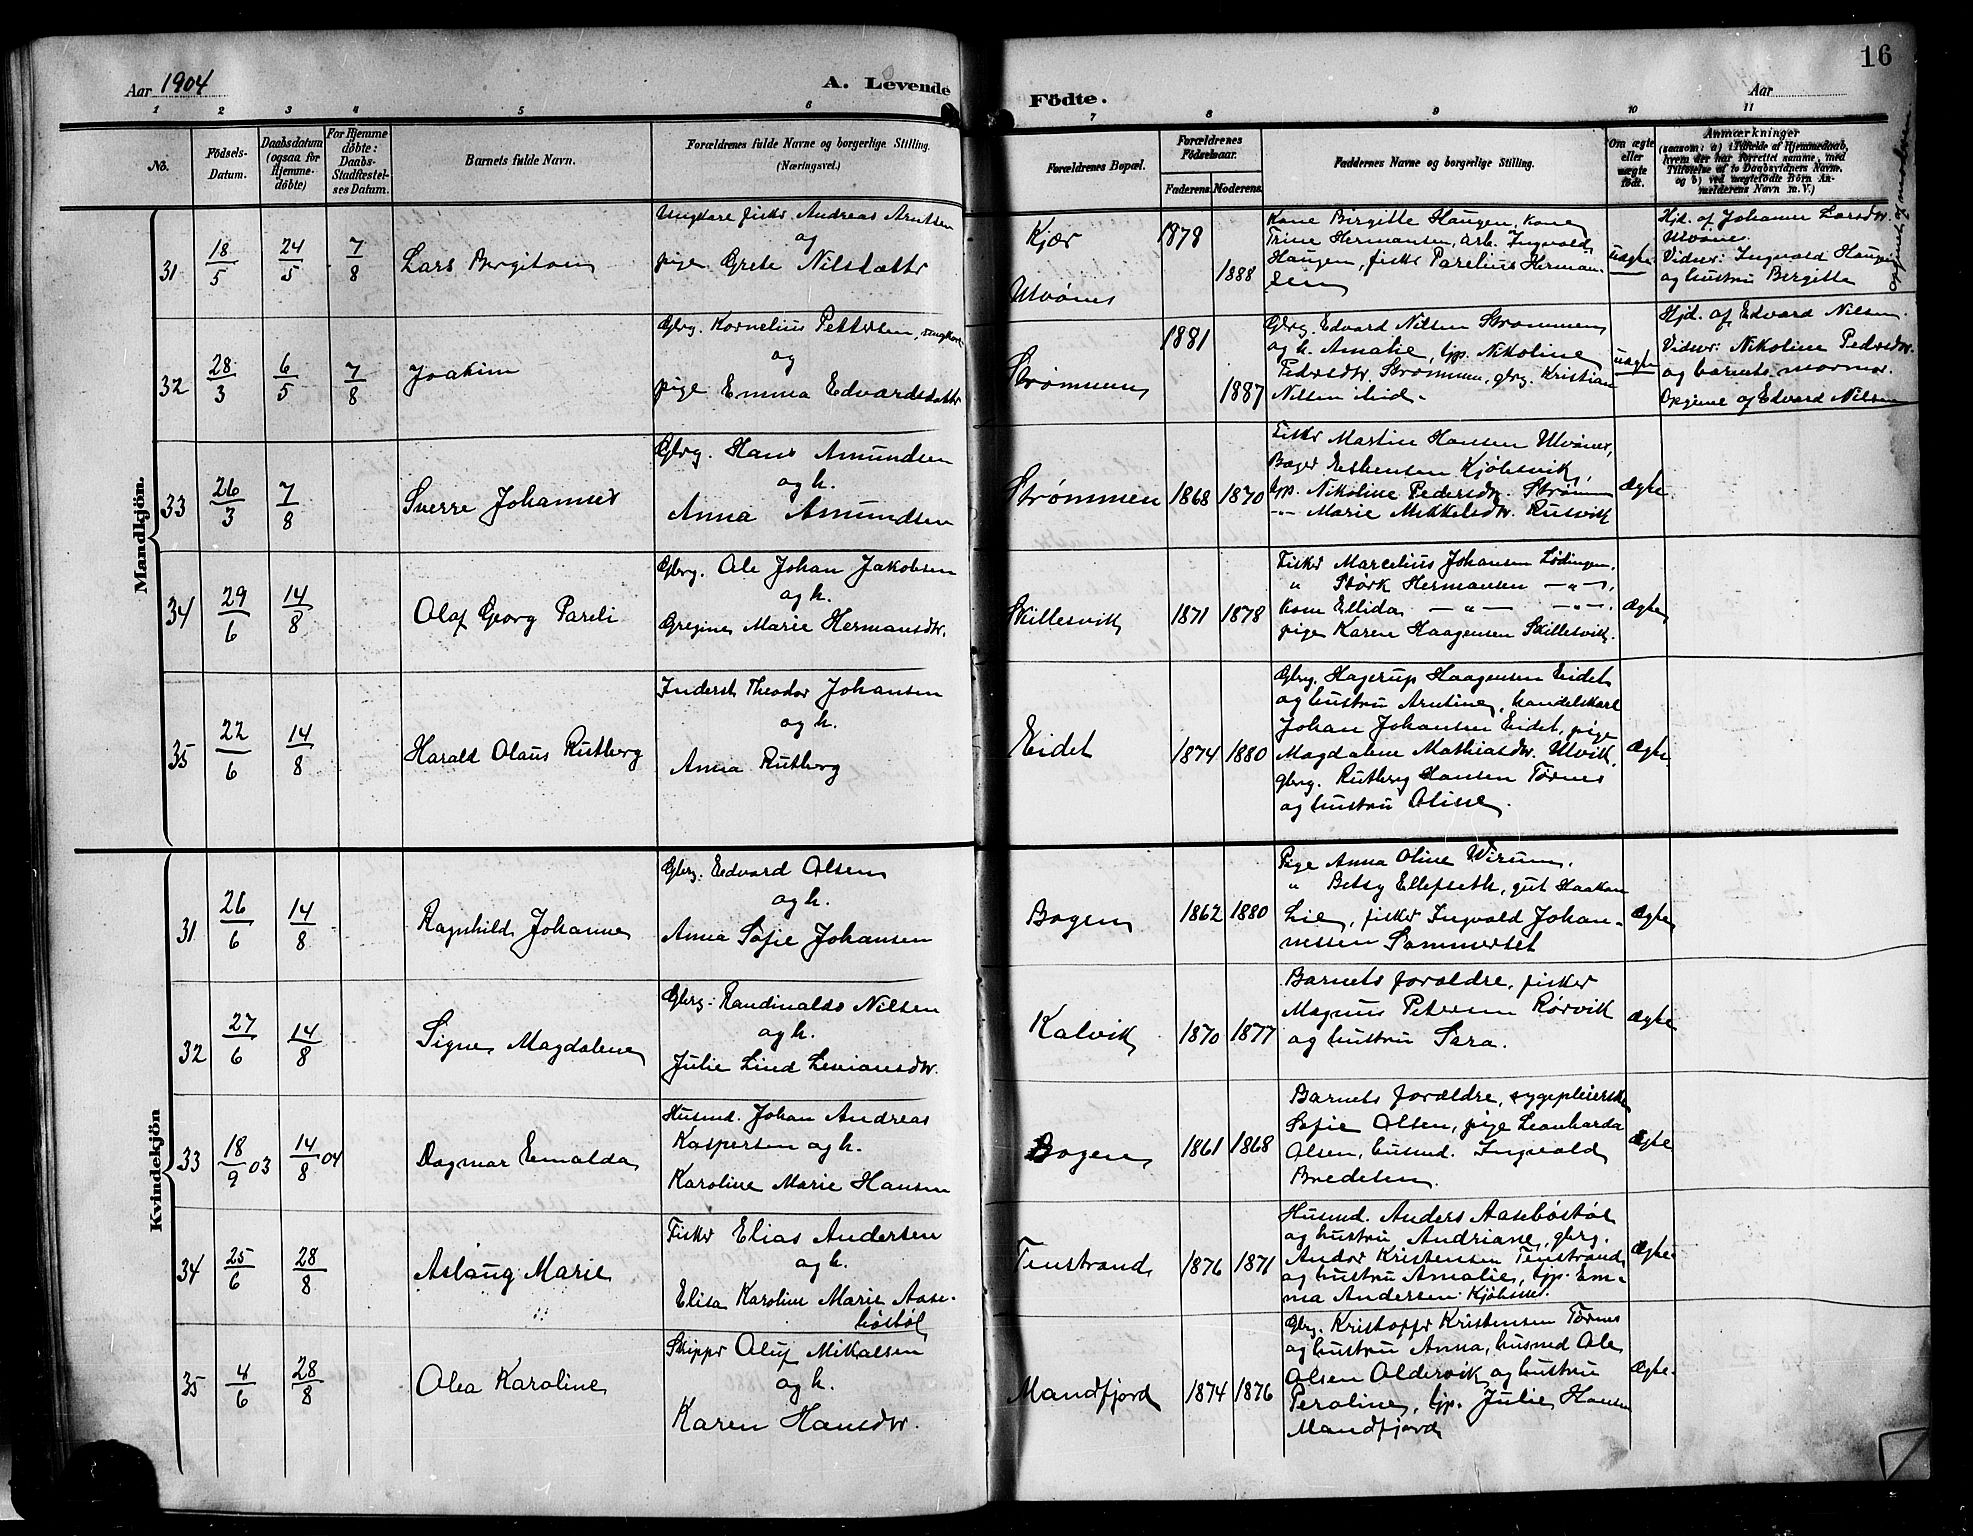 16
Aar 1904
A. Levende
Födte.
Aar
1 2 3 4 5 6 7 8 9 10 11
No.
Födsels-
Datum.
Daabsdatum
(ogsaa for
Hjemme-
döbte)
For Hjemme
döbte:
Daabs-
Stadfæstel-
ses Datum.
Barnets fulde Navn.
Forældrenes fulde Navne og borgerlige Stilling.
(Næringsvei.)
Forældrenes Bopæl.
Forældrenes
Födselsaar.
Faderens. Moderens.
Faddernes Navne og borgerlige Stilling.
Om ægte
eller
uægte
födt.
Anmærkninger
(saasom: a) i Tilfælde af Hjemmedaab,
hvem der har forrettet samme, med
Tilföielse af to Daabsvidners Navne,
og b) ved uægtefödte Börn An-
melderens Navn m. V.)
Mandkjön.
31 18/5 24/5 7/8 Lars Bergiton
Ungkare fisker Andreas Arntsen
og
pige Grete Nilsdatter
Kjær
Utvönes
1878 1888
Kone Birgitte Haugen, kone
Trine Hermansen, arb. Ingvald
Haugen, fisker Parelius Herman-
sen
uægte
Hjd. af Johanna Larsdtr.
Utvönes.
Vidner: Ingvald Haugen
og hustru Birgitte
32 28/3 6/5 7/8 Joakim
Gbrg. Kornelius Pettersen, ungkar
og
pige Emma Edvardsdatter
Strömmen
1881 1887
Gbrg. Edvard Nilsen Strommen
og h. Amalie, tjp. Nikoline
Pedersdtr. Strømmen, gbrg. Kristian
Nilsen Lind.
uægte
Hjd. af Edvard Nilsen.
Vidner: Nikoline Pedersdtr.
og barnets mormor.
Opgivne af Edvard Nilsen
33 26/3 7/8 Sverre Johannes
Gbrg. Hans Amundsen
og h.
Anna Amundsen
Strømmen 1868 1870
Fisker Martin Hansen Utvönes,
Kjöbsvik,
tjp. Nikoline Pedersdtr. Ström
-"- Marie Mikkelsdtr. Rusvik
Ægte
34 29/6 14/8 Olaf Georg Pareli
Gbrg. Ole Johan Jakobsen
og h.
Gregine Marie Hermansdtr.
Skillesvik 1871 1878
Fisker Marcelius Johansen Lödingen.
" Störk Hermansen -"-
kone Ellida -"- -"-
pige Karen Haagensen Skillesvik.
Ægte
35 22/6 14/8 Harald Olaus Rutberg
Inderst Theodor Johansen
og h.
Anna Rutberg
Eidet 1874 1880
Gbrg. Hagerup Haagensen Eidet
og hustru Arntine, handelskarl
Johan Johansen Eidet, pige
Magdalene Mathiasdtr. Utvik,
gbrg. Rutberg Hansen Tørnes
og hustru Oline.
Ægte
Kvindekjön
31 26/6 14/8 Ragnhild Johanne
Gbrg. Edvard Olsen
og h.
Anna Sofie Johansen
Bogen 1862 1880
Pige Anna Oline Wirum,
" Betsy Ellefseth, gut Haakon
Lie, fisker Ingvald Johan-
nessen Sommerset
Ægte
32 27/6 14/8 Signe Magdalene
Gbrg. Randinaldo Nilsen
og h.
Julie Lind Liviansdtr.
Kalvik 1870 1877
Barnets forældre, fisker
Magnus Petersen Rørvik
og hustru Sara.
Ægte
33 18/9 03 14/8 04 Dagmar Emalda
Husmd. Johan Andreas
Kaspersen og h.
Karoline Marie Hansen
Bogen 1861 1868
Barnets forældre, sygepleierske
Sofie Olsen, pige Leonharda
Olsen, husmd. Ingvald
Bredesen.
Ægte
34 25/6 28/8 Aslaug Marie
Fisker Elias Andersen
og h.
Elisa Karoline Marie Aase-
böstöl
Tenstrand 1876 1871
Husmd. Anders Aaseböstöl
og hustru Andriane, gbrg.
Andor Kristensen Tenstrand
og hustru Amalie, tjp. Em-
ma Andersen Kjöbsnes.
Ægte
35 4/6 28/8 Olea Karoline
Skipper Oluf Mikalsen
og h.
Karen Hansdtr.
Mandfjord 1874 1876
Gbrg. Kristoffer Kristensen Tørnes
og hustru Anna, husmd Ole
Olsen Aldervik og hustru
Peroline, tjp. Julie Hansen
Mandfjord
Ægte